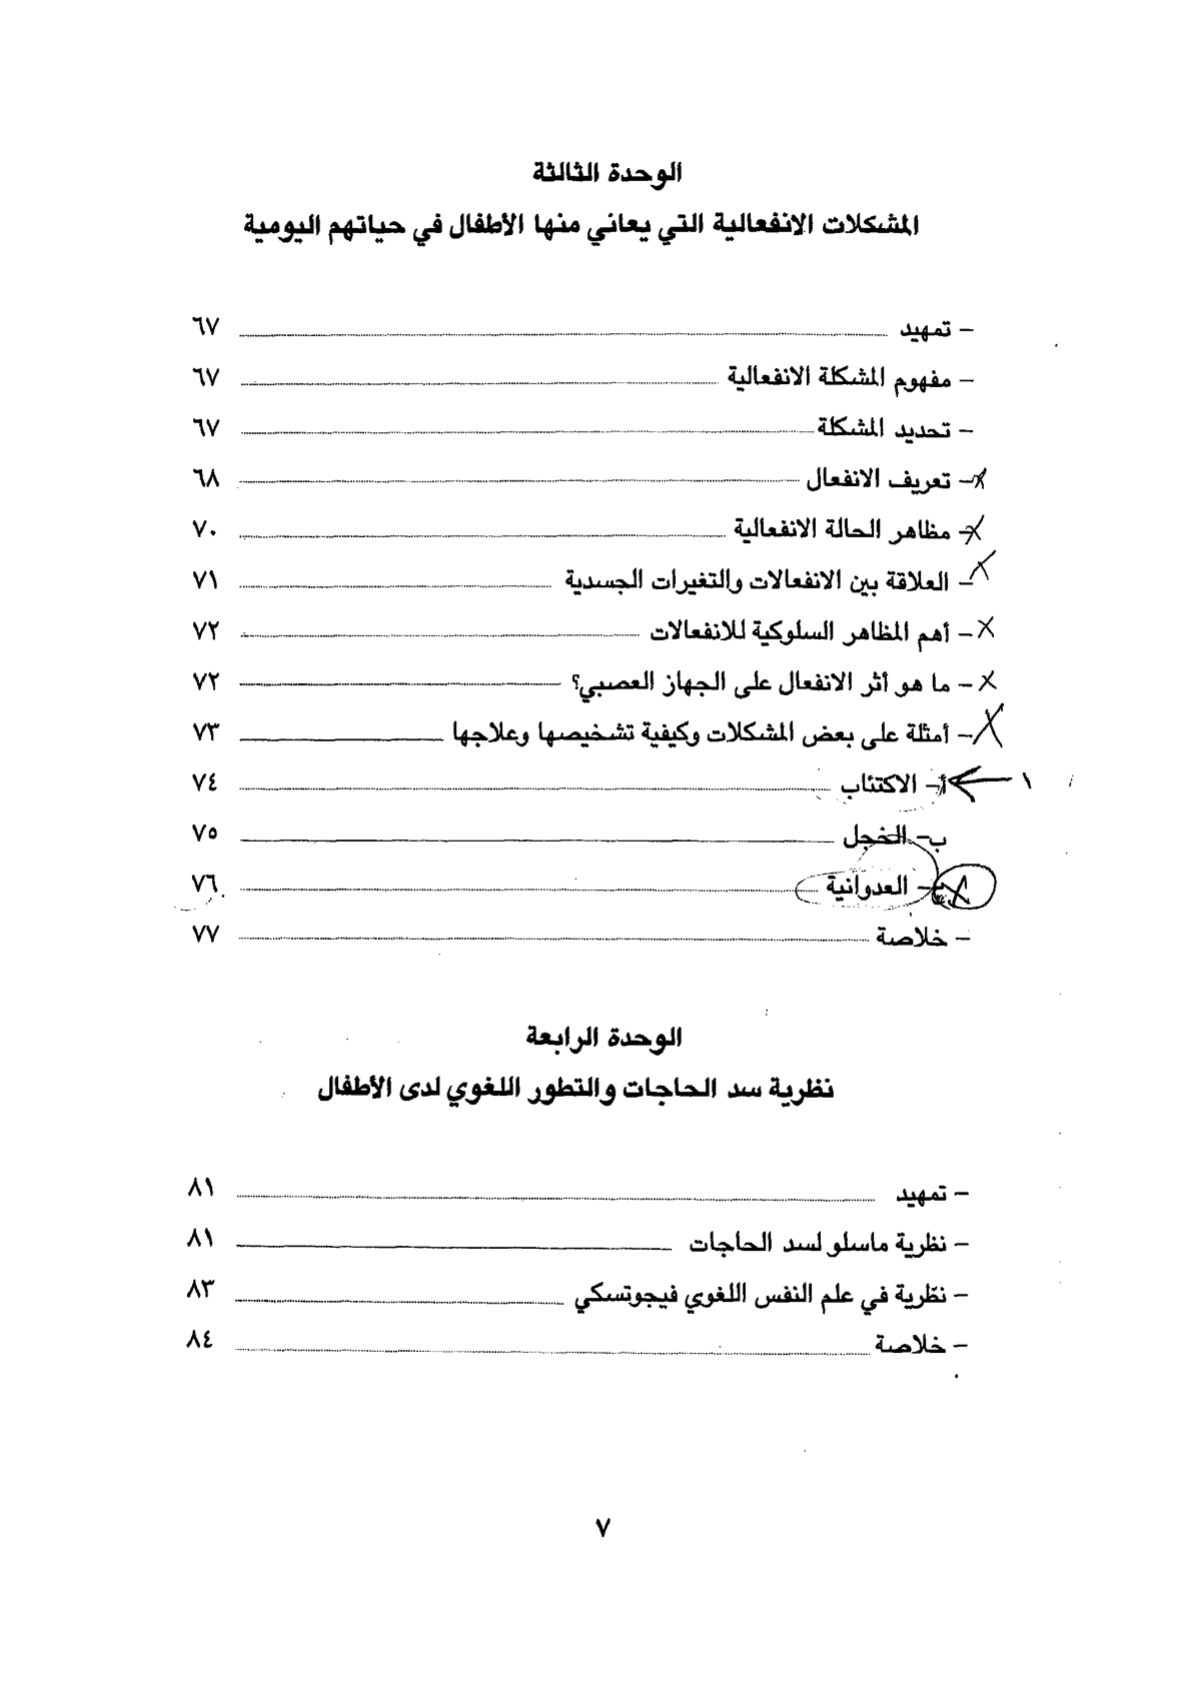 الوحدة الثالثة
المشكلات الانفعالية التي يعاني منها الأطفال في حياتهم اليومية
– تمهيد ٦٧
– مفهوم المشكلة الانفعالية ٦٧
– تحديد المشكلة ٦٧
– تعريف الانفعال ٦٨
– مظاهر الحالة الانفعالية ٧٠
– العلاقة بين الانفعالات والتغيرات الجسدية ٧١
– أهم المظاهر السلوكية للانفعالات ٧٢
– ما هو أثر الانفعال على الجهاز العصبي؟ ٧٢
– أمثلة على بعض المشكلات وكيفية تشخيصها وعلاجها ٧٣
١ أ– الاكتئاب ٧٤
ب– الخجل ٧٥
ج– العدوانية ٧٦
– خلاصة ٧٧
الوحدة الرابعة
نظرية سد الحاجات والتطور اللغوي لدى الأطفال
– تمهيد ٨١
– نظرية ماسلو لسد الحاجات ٨١
– نظرية في علم النفس اللغوي فيجوتسكي ٨٣
– خلاصة ٨٤
٧